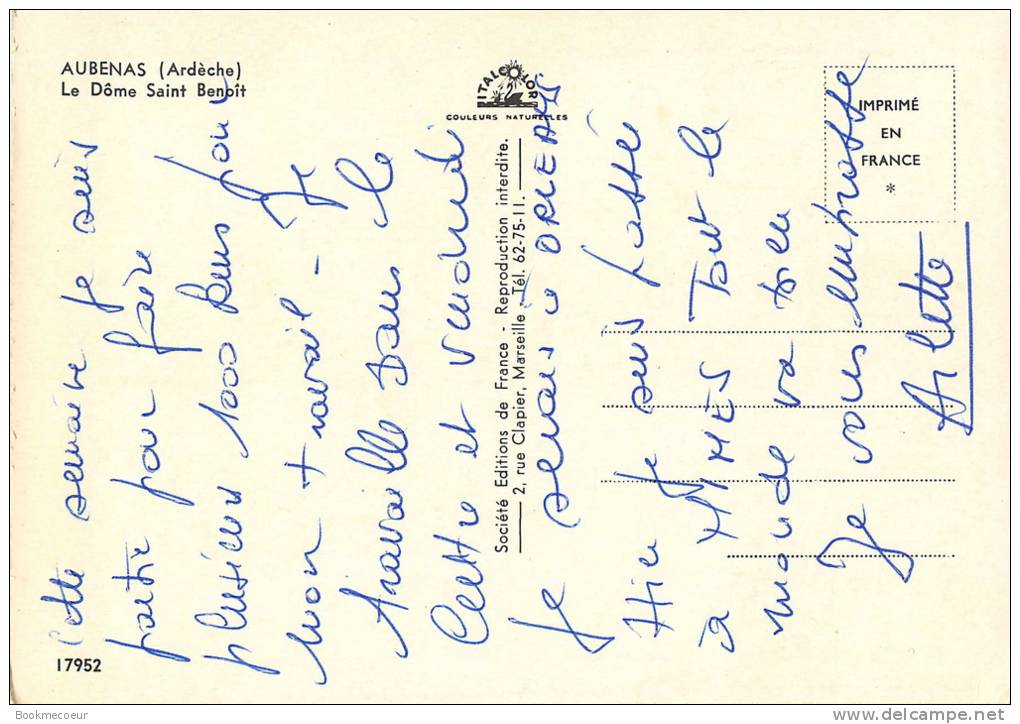 AUBENAS (Ardèche)
Le Dôme Saint Benoît
ITALCOLOR
COULEURS NATURELLES
IMPRIMÉ
EN
FRANCE
*
Société Editions de France - Reproduction interdite.
2, rue Clapier, Marseille - Tél. 62-75-11.
Cette semaine je suis
partie par faire
plusieurs 1000 Bens pour
mon travail - Je
travaille Dans le
Centre et vendredi
je serais à ORLEANS
Hier je suis passée
à NIMES Tout le
monde va bien
Je vous embrasse
Arlette
17952
Bookmecoeur
delcampe.net